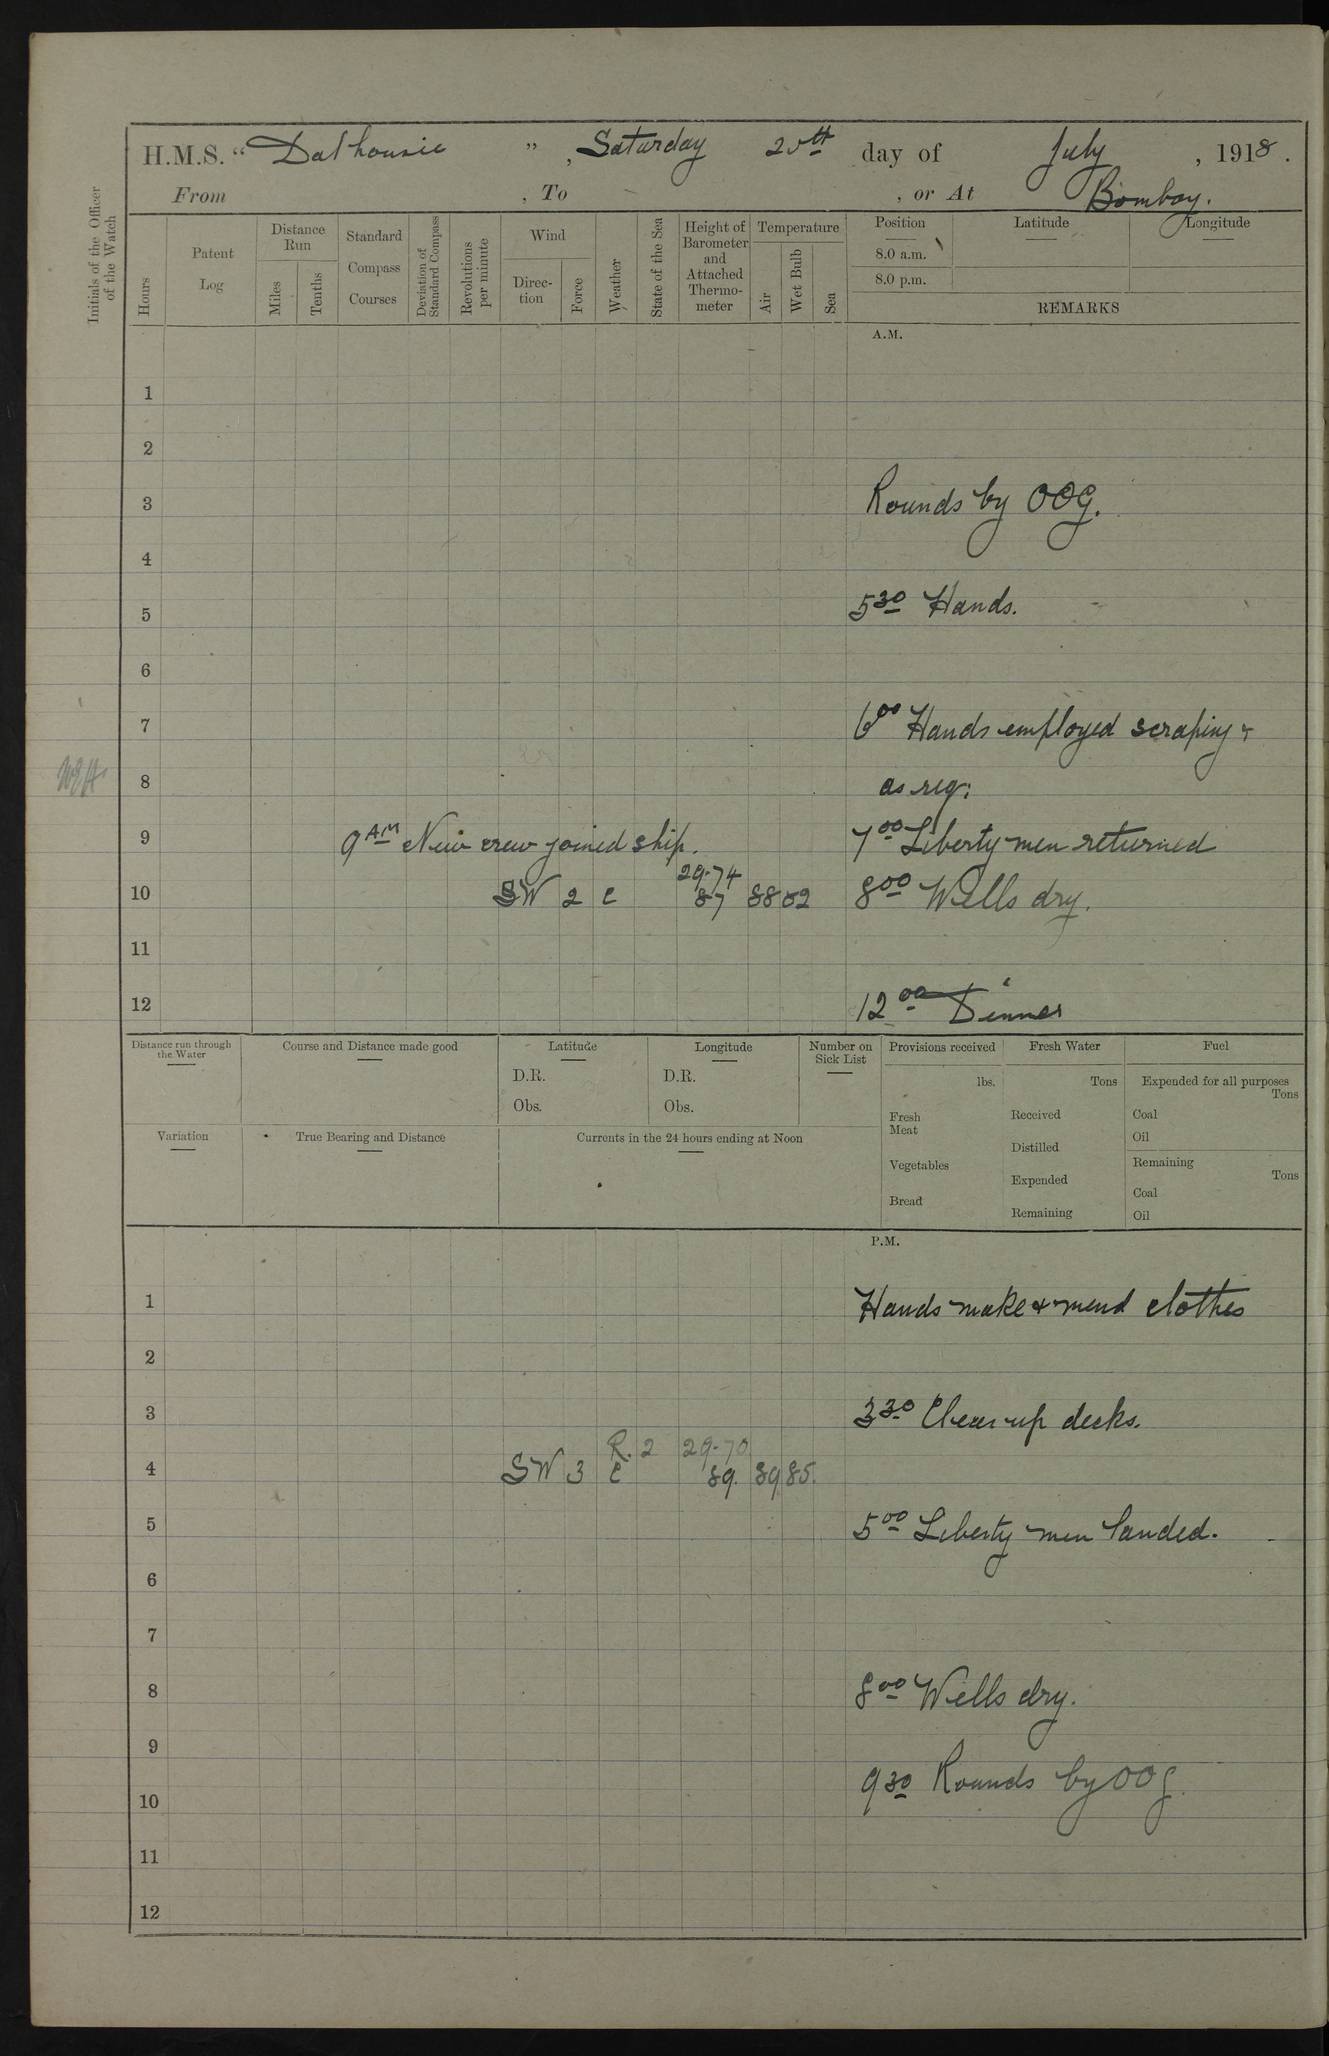 H.M.S. "Dalhousie", Saturday 20th day of July, 1918.
From , To , or At Bombay.
Initials of the Officer of the Watch
Hours
Patent Log
Distance Run
Miles
Tenths
Standard Compass Courses
Deviation of Standard Compass
Revolutions per minute
Wind
Direction
Force
Weather
State of the Sea
Height of Barometer and Attached Thermometer
Temperature
Air
Wet Bulb
Sea
Position
8.0 a.m.
8.0 p.m.
Latitude
Longitude
REMARKS
A.M.
1
2
3 Rounds by OOG.
4
5 5 30 Hands.
6
7 6 00 Hands employed scraping &
8 as req:
9 9 AM New crew joined ship. 7 00 Liberty men returned
29.74
10 SW 2 c 87 88 82 8 00 Wells dry.
11
12 12 00 Dinner
Distance run through the Water
Course and Distance made good
Latitude
D.R.
Obs.
Longitude
D.R.
Obs.
Number on Sick List
Provisions received
lbs.
Fresh Meat
Vegetables
Bread
Fresh Water
Tons
Received
Distilled
Expended
Remaining
Fuel
Expended for all purposes
Tons
Coal
Oil
Remaining
Tons
Coal
Oil
Variation
True Bearing and Distance
Currents in the 24 hours ending at Noon
P.M.
1 Hands make & mend clothes
2
3 3 30 Clear up decks.
R. 2 29.70
4 SW 3 c 89. 89 85.
5 5 00 Liberty men landed.
6
7
8 8 00 Wells dry.
9
10 9 30 Rounds by OOG
11
12